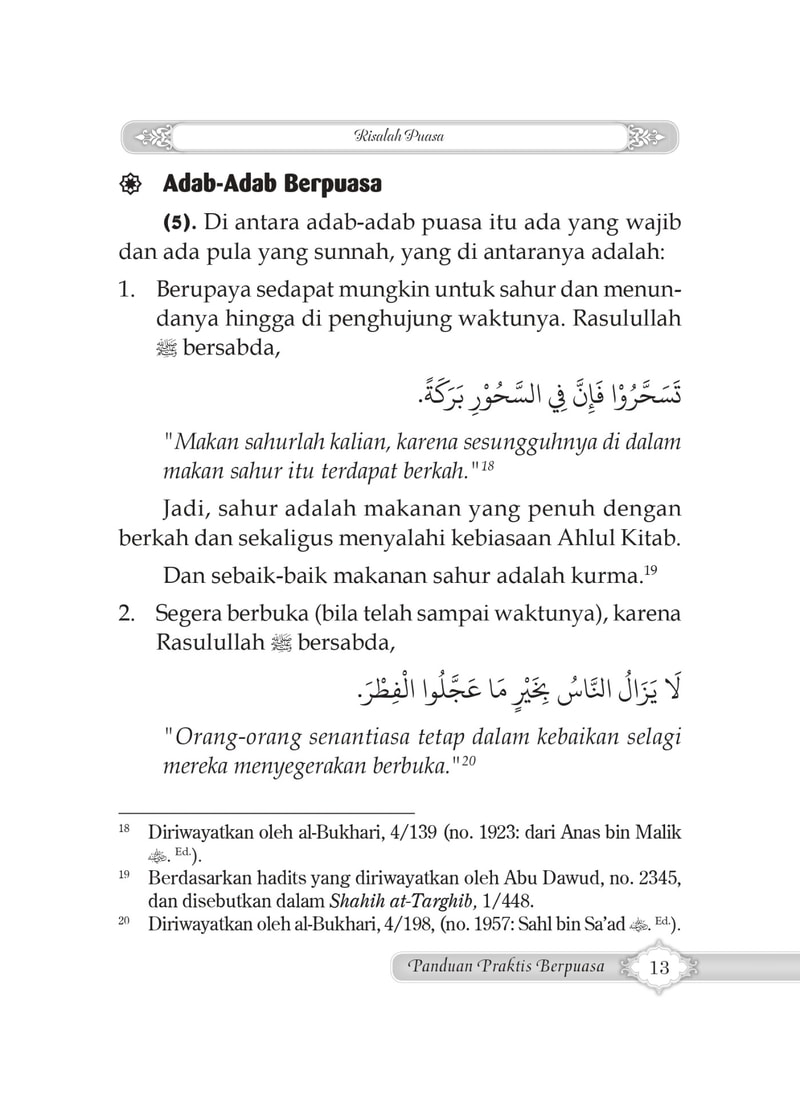 Risalah Puasa
Adab-Adab Berpuasa
(5). Di antara adab-adab puasa itu ada yang wajib
dan ada pula yang sunnah, yang di antaranya adalah:
1. Berupaya sedapat mungkin untuk sahur dan menun-
danya hingga di penghujung waktunya. Rasulullah
ﷺ bersabda,
تَسَحَّرُوْا فَإِنَّ فِي السَّحُوْرِ بَرَكَةً.
"Makan sahurlah kalian, karena sesungguhnya di dalam
makan sahur itu terdapat berkah."18
Jadi, sahur adalah makanan yang penuh dengan
berkah dan sekaligus menyalahi kebiasaan Ahlul Kitab.
Dan sebaik-baik makanan sahur adalah kurma.19
2. Segera berbuka (bila telah sampai waktunya), karena
Rasulullah ﷺ bersabda,
لَا يَزَالُ النَّاسُ بِخَيْرٍ مَا عَجَّلُوا الْفِطْرَ.
"Orang-orang senantiasa tetap dalam kebaikan selagi
mereka menyegerakan berbuka."20
18 Diriwayatkan oleh al-Bukhari, 4/139 (no. 1923: dari Anas bin Malik
. Ed.).
19 Berdasarkan hadits yang diriwayatkan oleh Abu Dawud, no. 2345,
dan disebutkan dalam Shahih at-Targhib, 1/448.
20 Diriwayatkan oleh al-Bukhari, 4/198, (no. 1957: Sahl bin Sa'ad . Ed.).
Panduan Praktis Berpuasa 13